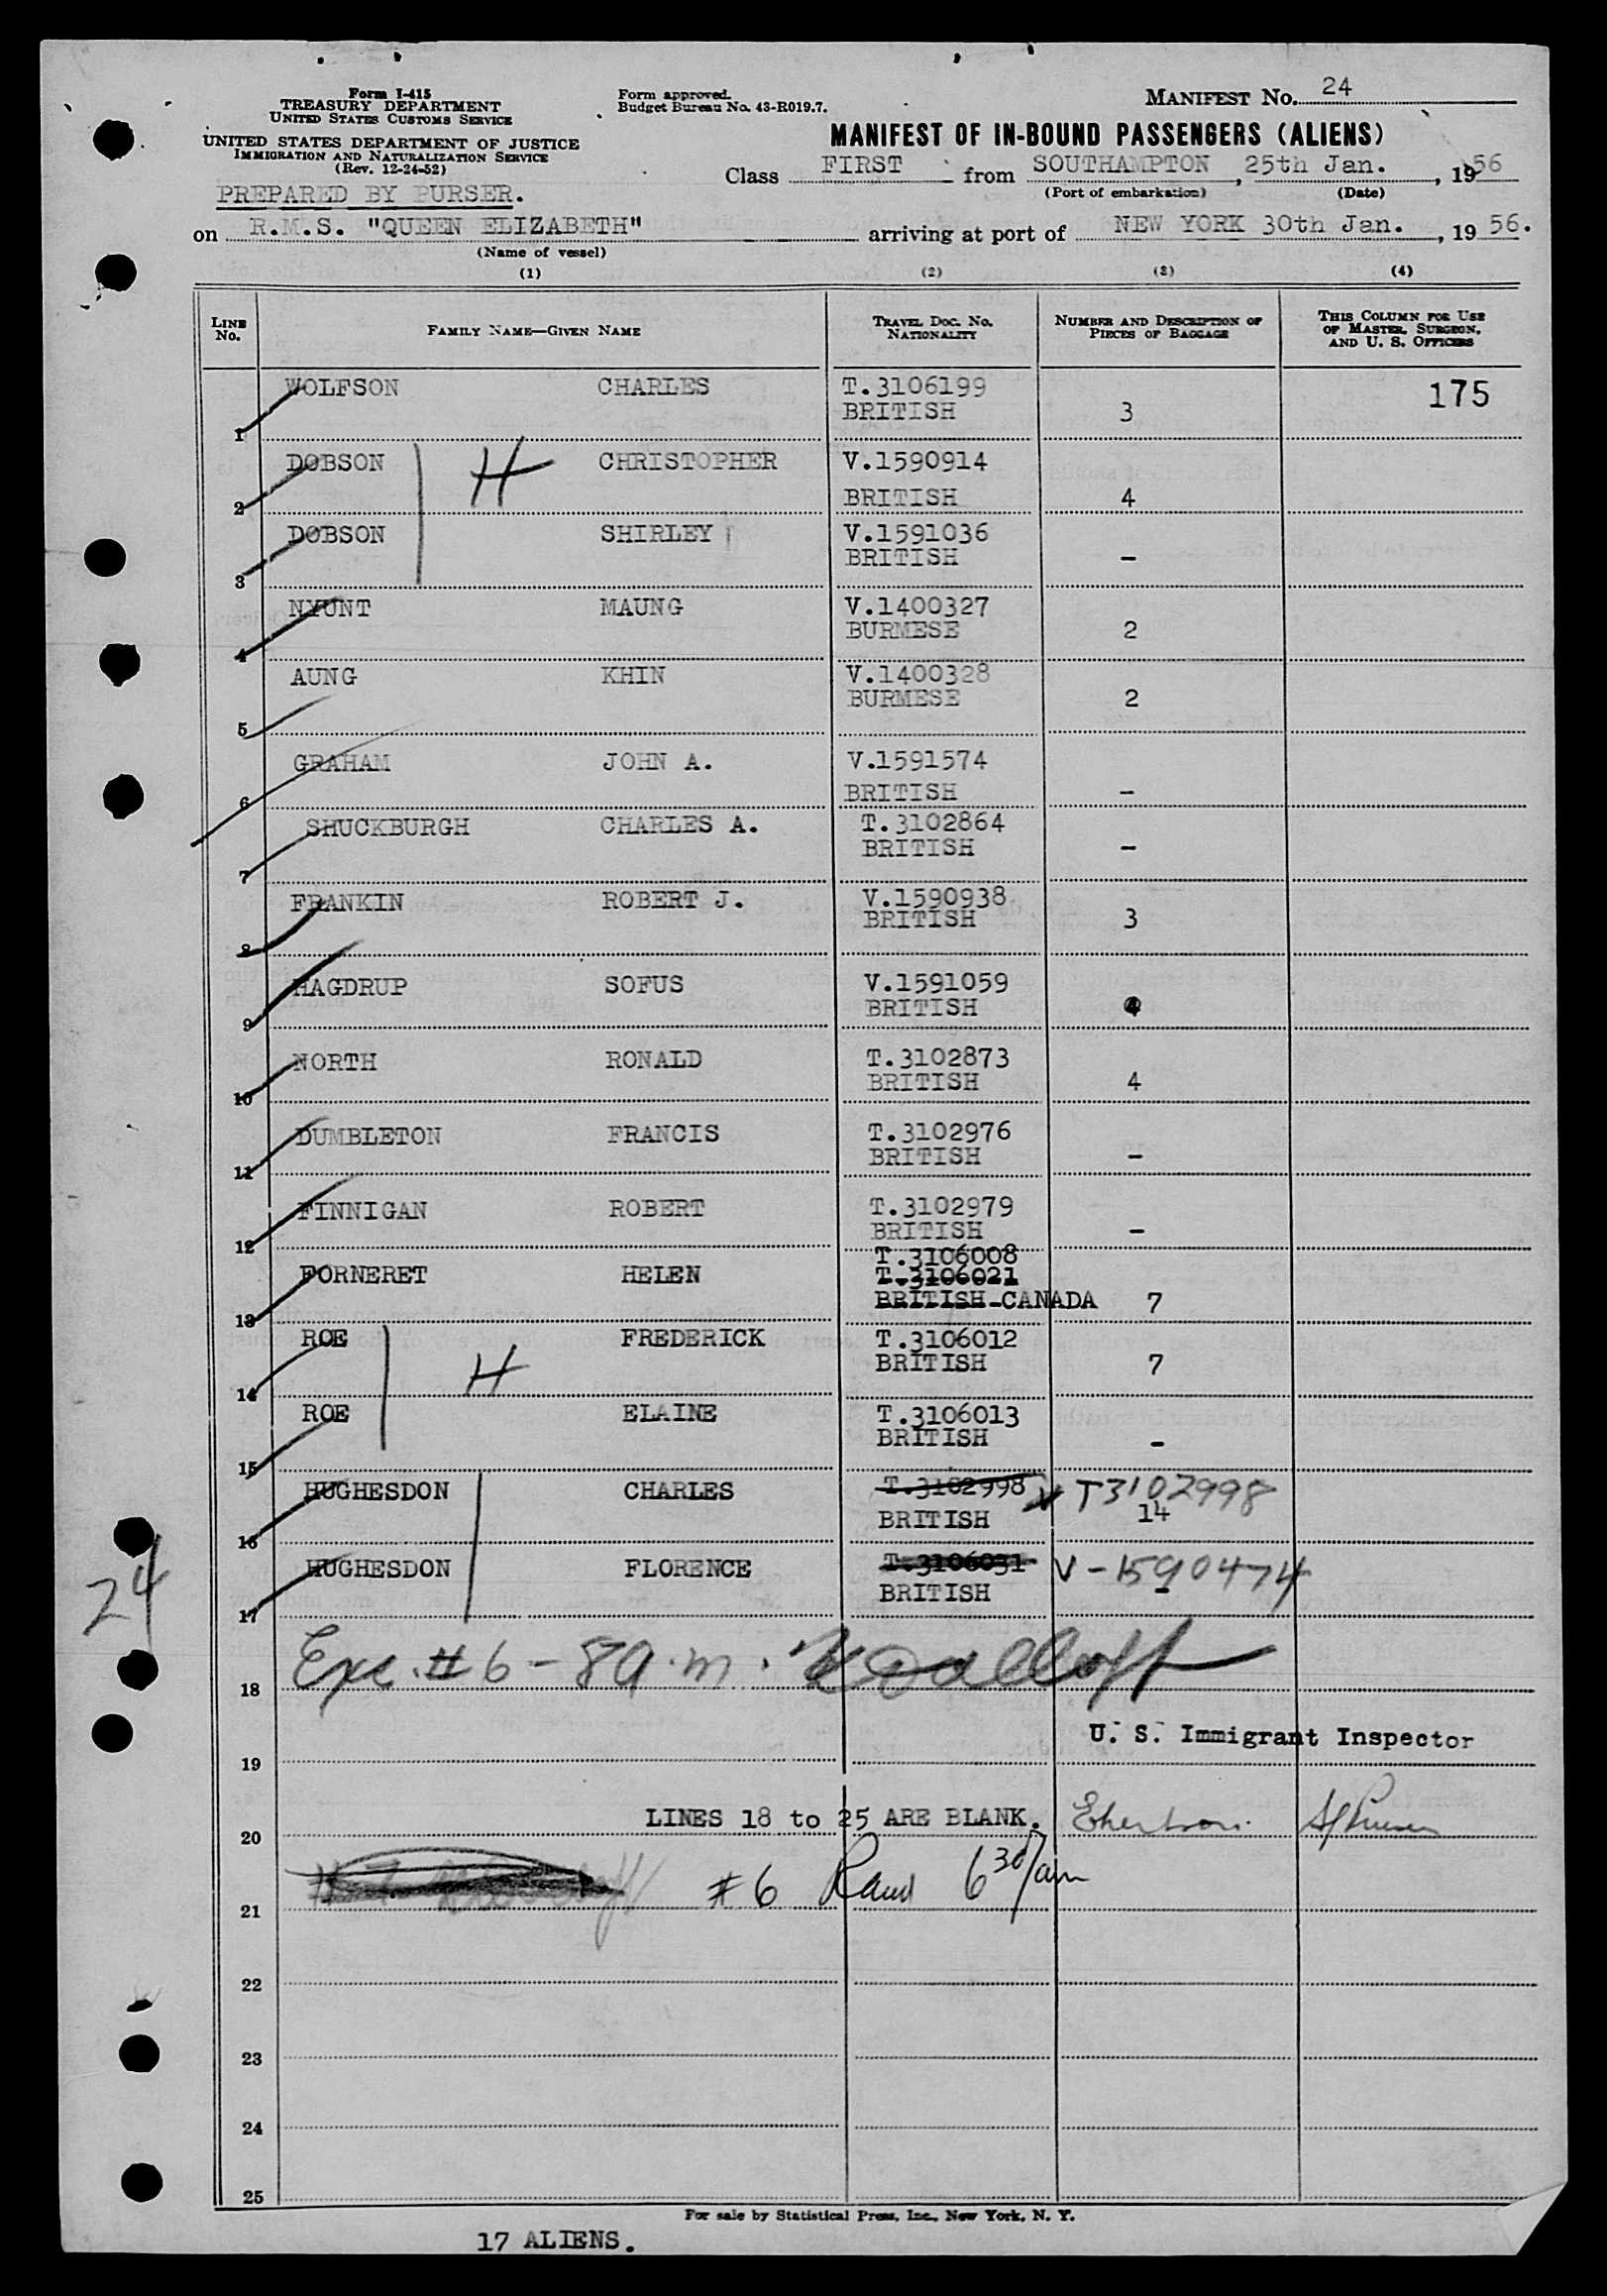 Form I-415
TREASURY DEPARTMENT
UNITED STATES CUSTOMS SERVICE
UNITED STATES DEPARTMENT OF JUSTICE
IMMIGRATION AND NATURALIZATION SERVICE
(Rev. 12-24-52)
PREPARED BY PURSER.
Form approved.
Budget Bureau No. 43-R019.7.
MANIFEST No. 24
MANIFEST OF IN-BOUND PASSENGERS (ALIENS)
Class FIRST from SOUTHAMPTON, 25th Jan., 1956
(Port of embarkation) (Date)
on R.M.S. "QUEEN ELIZABETH" arriving at port of NEW YORK 30th Jan., 19 56.
(Name of vessel)
(1) (2) (3) (4)
LINE No. FAMILY NAME—GIVEN NAME TRAVEL DOC. NO. NATIONALITY NUMBER AND DESCRIPTION OF PIECES OF BAGGAGE THIS COLUMN FOR USE OF MASTER, SURGEON, AND U. S. OFFICERS
WOLFSON CHARLES T.3106199 175
1 BRITISH 3
DOBSON H CHRISTOPHER V.1590914
2 BRITISH 4
DOBSON SHIRLEY V.1591036
3 BRITISH -
NYUNT MAUNG V.1400327
4 BURMESE 2
AUNG KHIN V.1400328
5 BURMESE 2
GRAHAM JOHN A. V.1591574
6 BRITISH -
SHUCKBURGH CHARLES A. T.3102864
7 BRITISH -
FRANKIN ROBERT J. V.1590938
8 BRITISH 3
HAGDRUP SOFUS V.1591059
9 BRITISH 4
NORTH RONALD T.3102873
10 BRITISH 4
DUMBLETON FRANCIS T.3102976
11 BRITISH -
FINNIGAN ROBERT T.3102979
12 BRITISH -
T.3106008
FORNERET HELEN T.3106021
13 BRITISH-CANADA 7
ROE H FREDERICK T.3106012
14 BRITISH 7
ROE ELAINE T.3106013
15 BRITISH -
HUGHESDON CHARLES T.3102998 T3102998
16 BRITISH 14
HUGHESDON FLORENCE T.3106031 V-1590474
17 BRITISH -
24
18 Exc. #6 - 8a.m.
U. S. Immigrant Inspector
19
LINES 18 to 25 ARE BLANK.
20
21 #6 6 30/am
22
23
24
25
For sale by Statistical Press, Inc., New York, N. Y.
17 ALIENS.